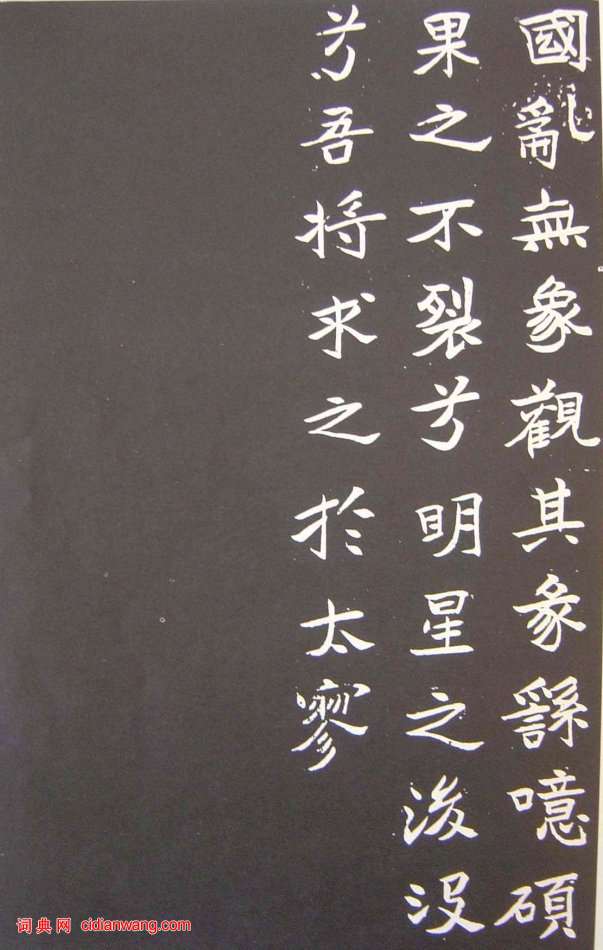 國亂無象觀其彖繇噫碩
果之不裂兮明星之浚没
兮吾将求之於太寥
词典网 cidianwang.com